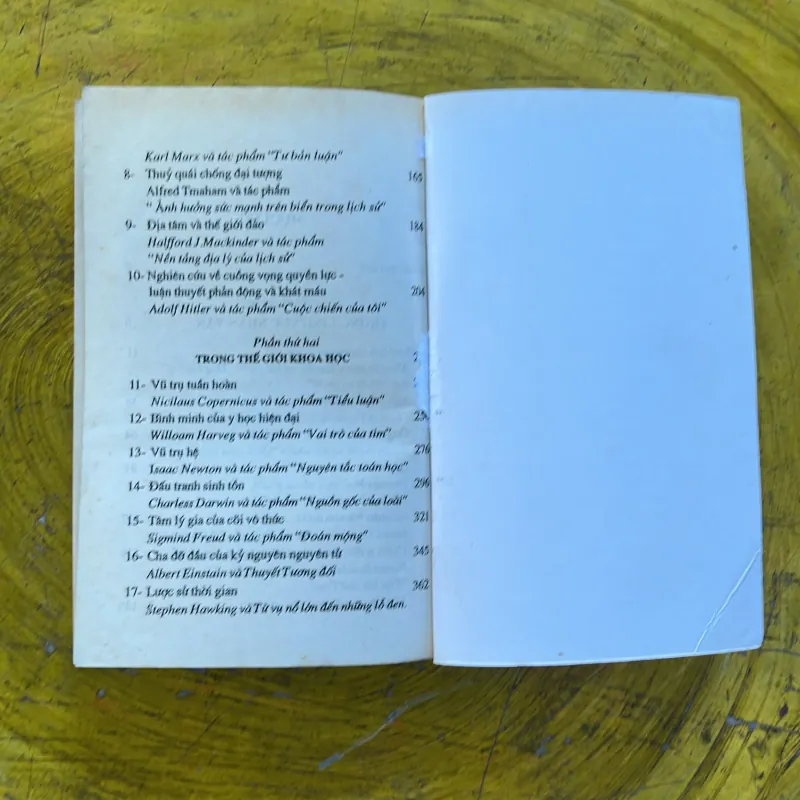 Karl Marx và tác phẩm "Tư bản luận"
8- Thuỷ quái chống đại tượng 165
Alfred Tmaham và tác phẩm
" Ảnh hưởng sức mạnh trên biển trong lịch sử"
9- Địa tâm và thế giới đảo 184
Halfford J.Mackinder và tác phẩm
"Nền tảng địa lý của lịch sử"
10- Nghiên cứu về cuồng vọng quyền lực -
luận thuyết phản động và khát máu 204
Adolf Hitler và tác phẩm "Cuộc chiến của tôi"
Phần thứ hai
TRONG THẾ GIỚI KHOA HỌC
11- Vũ trụ tuần hoàn
Nicilaus Copernicus và tác phẩm "Tiểu luận"
12- Bình minh của y học hiện đại
Willoam Harveg và tác phẩm "Vai trò của tim"
13- Vũ trụ hệ 270
Isaac Newton và tác phẩm "Nguyên tắc toán học"
14- Đấu tranh sinh tồn 296
Charless Darwin và tác phẩm "Nguồn gốc của loài"
15- Tâm lý gia của cõi vô thức 321
Sigmind Freud và tác phẩm "Đoán mộng"
16- Cha đỡ đầu của kỷ nguyên nguyên tử 345
Albert Einstain và Thuyết Tương đối
17- Lược sử thời gian 362
Stephen Hawking và Từ vụ nổ lớn đến những lỗ đen.